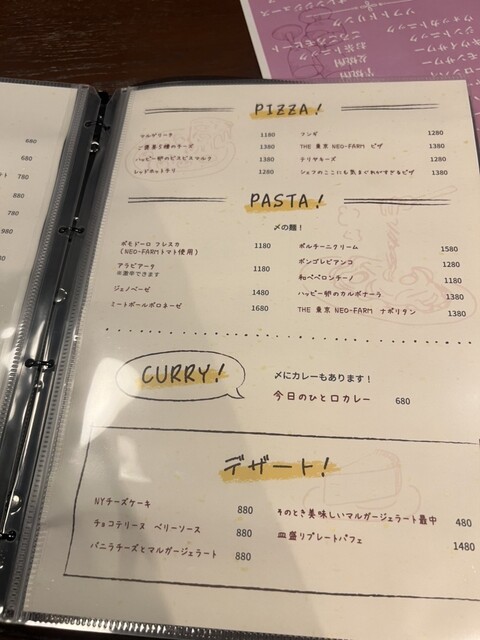 PIZZA!
マルゲリータ 1180
ご褒美5種のチーズ 1380
ハッピー卵のビスビスマルク 1380
レッドホットチリ 1280
リンゼ 1280
THE 東京 NEO-FARM ピザ 1380
テリヤキーズ 1280
シェフのここにも気まぐれがすぎるピザ 1380
PASTA!
〆の麺！
ポモドーロ フレスカ
(NEO-FARMトマト使用) 1180
アラビアータ 1180
※激辛できます
ジェノベーゼ 1480
ミートボールボロネーゼ 1680
ポルチーニクリーム 1580
ボンゴレビアンコ 1280
和ペペロンチーノ 1180
ハッピー卵のカルボナーラ 1380
THE 東京 NEO-FARM ナポリタン 1380
CURRY!
〆にカレーもあります！
今日のひと口カレー 680
デザート!
NYチーズケーキ 880
チョコテリーヌ ベリーソース 880
バニラチーズとマルガージェラート 880
そのとき美味しいマルガージェラート最中 480
皿盛りプレートパフェ 1480
680
680
780
880
780
980
80
ソフトドリンク
ウォッカトニック
ジントニック
お茶トニック
ごろごろモヒート
キウイサワー